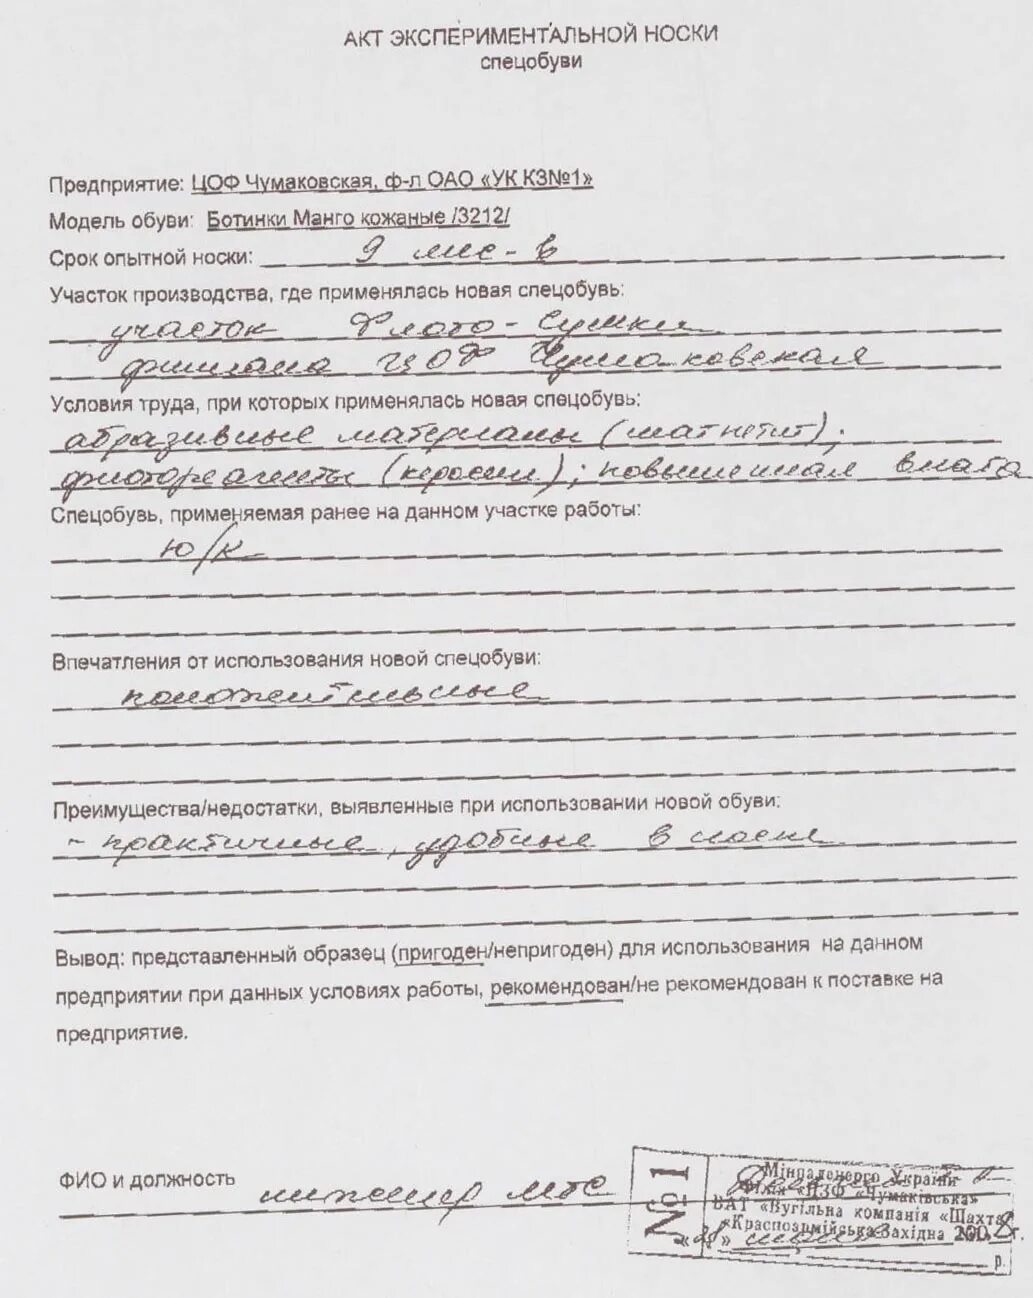 АКТ ЭКСПЕРИМЕНТАЛЬНОЙ НОСКИ
спецобуви
Предприятие: ЦОФ Чумаковская, ф-л ОАО «УК КЗ№1»
Модель обуви: Ботинки Манго кожаные /3212/
Срок опытной носки: 9 мес-в
Участок производства, где применялась новая спецобувь:
участок Флото-Сушки
филиала ЦОФ Чумаковская
Условия труда, при которых применялась новая спецобувь:
абразивные материалы (магнетит);
флотореагенты (керосин); повышенная влага
Спецобувь, применяемая ранее на данном участке работы:
ю/к
Впечатления от использования новой спецобуви:
положительные
Преимущества/недостатки, выявленные при использовании новой обуви:
- практичные, удобные в носке
Вывод: представленный образец (пригоден/непригоден) для использования на данном
предприятии при данных условиях работы, рекомендован/не рекомендован к поставке на
предприятие.
ФИО и должность инженер МТС
№1
Мінпаленерго України
Філія «ЦЗФ «Чумаківська»
ВАТ «Вугільна компанія «Шахта
«Красноармійська Західна
2008 г.
р.